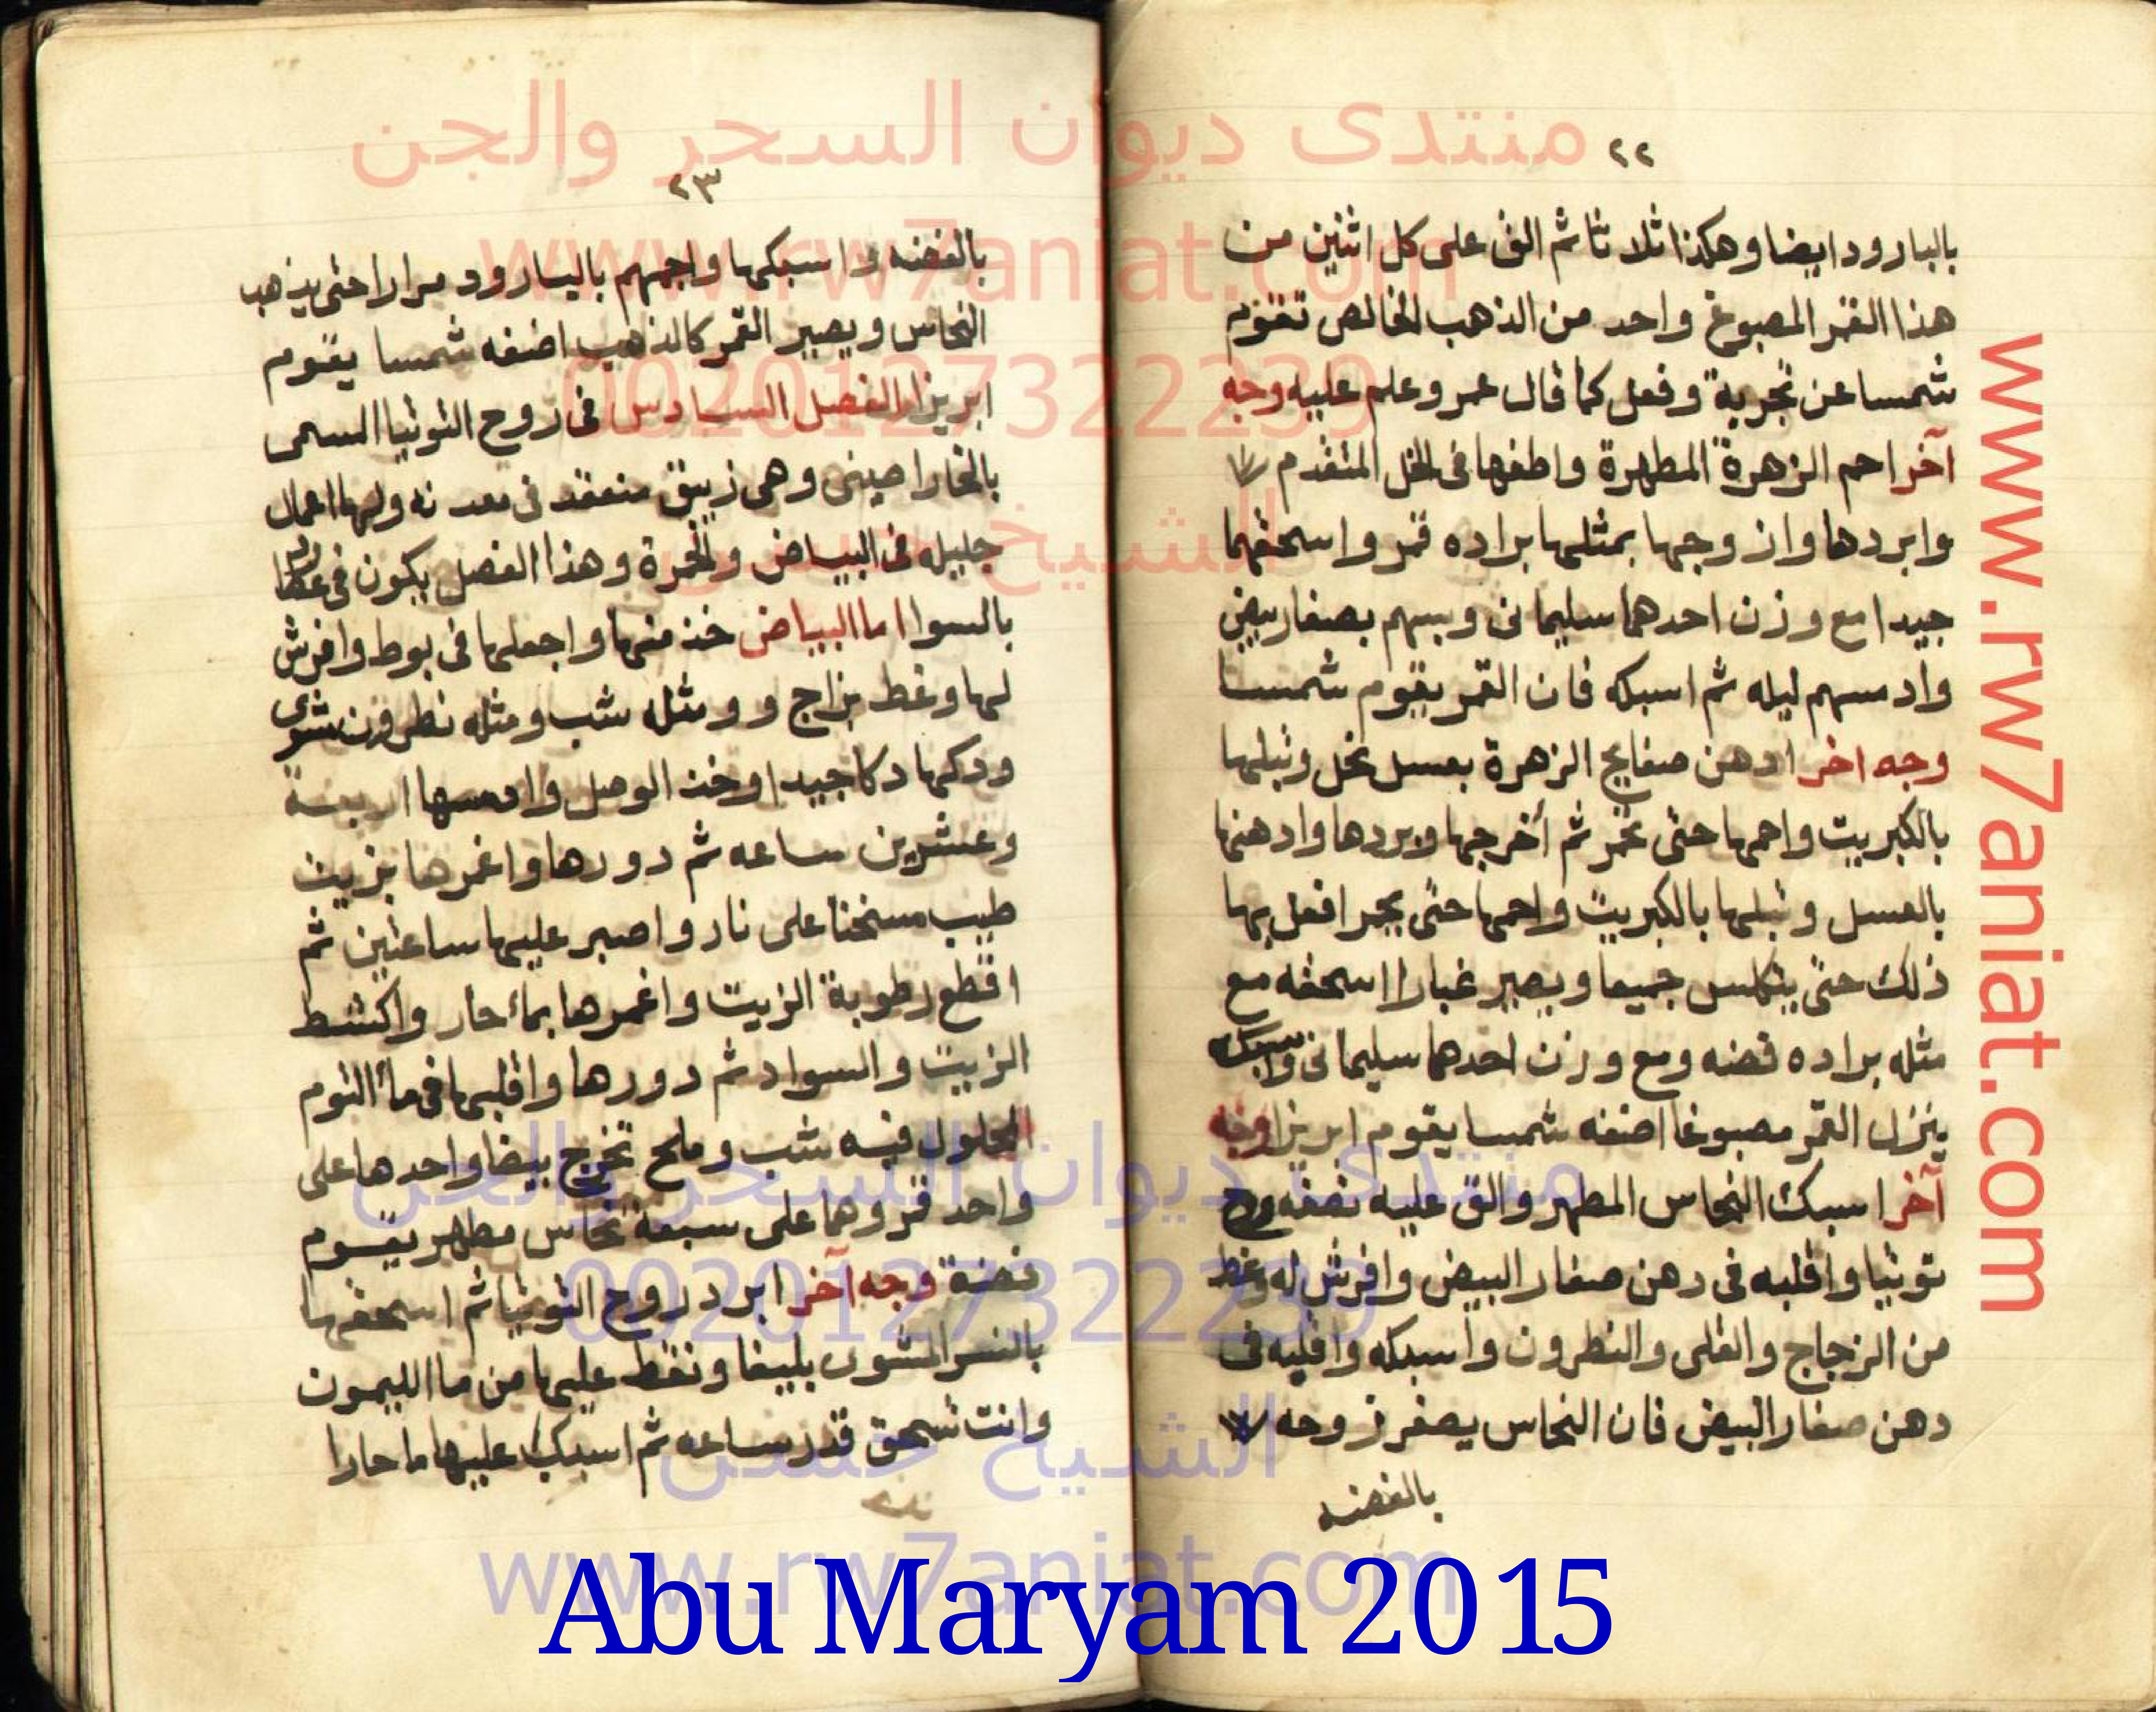 منتدى ديوان السحر والجن
www.rw7aniat.com
00201273 22239
الشيخ حسن
www.rw7aniat.com
٢٢
بالبارود ايضا وهكذا ثلاثا ثم الق على كل اثنين من
هذا القمر المصبوغ واحد من الذهب الخالص تقوم
شمسا عن تجربة وفعل كما قال عمر وعلم عليه وجه
آخر احم الزهرة المطهرة واطفها فى الخل المتقدم
وابردها وازوجها بمثلها براده قمر واسحقهما
جيدا مع وزن احدهما سليمانى وبسهم بصفار بيض
وادمسهم ليله ثم اسبكه فان القمر يقوم شمسا
وجه اخر ادهن صفايح الزهرة بعسل نحل وتبلها
بالكبريت واحمها حتى تحمر ثم أخرجها وبردها وادهنها
بالعسل وتبلها بالكبريت واحمها حتى يحمر افعل بها
ذلك حتى يتكلس جميعا ويصير غبارا اسحقه مع
مثله براده فضه ومع وزن احدهما سليمانى واسبكه
ينزل القمر مصبوغا اضفه شمسا يقوم ابريزا وجه
آخر اسبك النحاس المطهر والق عليه نصفه روح
توتيا واقلبه فى دهن صفار البيض وافرش له وغط
من الزجاج والقلى والنطرون واسبكه واقلبه فى
دهن صفار البيض فان النحاس يصفر زوجه
بالفضه
٢٣
بالفضه واسبكها واجمهم بالبارود مرارا حتى يذهب
النحاس ويصير القمر كالذهب اضفه شمسا يقوم
ابريزا الفصل السادس فى روح التوتيا السمى
بالخاراصينى وهى زيبق منعقد فى معدنه ولها اعمال
جليله فى البياض والحمرة وهذا الفصل يكون فى
بالسوا اما البياض خذ منها واجعلها فى بوط وافرش
لها وغط بزاج و ومثله شب ومثله نطرون شوى
ودكها دكا جيدا وخذ الوصل وادمسها اربعة
وعشرين ساعه ثم دورها واغمرها بزيت
طيب مسخنا على نار واصبر عليها ساعتين ثم
اقطع رطوبة الزيت واغمرها بماء حار واكشط
الزيت والسواد ثم دورها واقلبها فى ماء الثوم
المحلول فيه شب وملح تخرج بيضا واحدها على
واحد قمر وهما على سبعة نحاس مطهر يقوم
فضة وجه آخر ابرد روح التوتيا ثم اسحقها
بالنسر المشوى بليغا ونقط عليها من ماا الليمون
وانت تسحق قدر ساعه ثم اسبك عليها ما حارا
منتدى ديوان السحر والجن
00201273 22239
الشيخ حسن
www.rw7aniat.com
Abu Maryam 2015